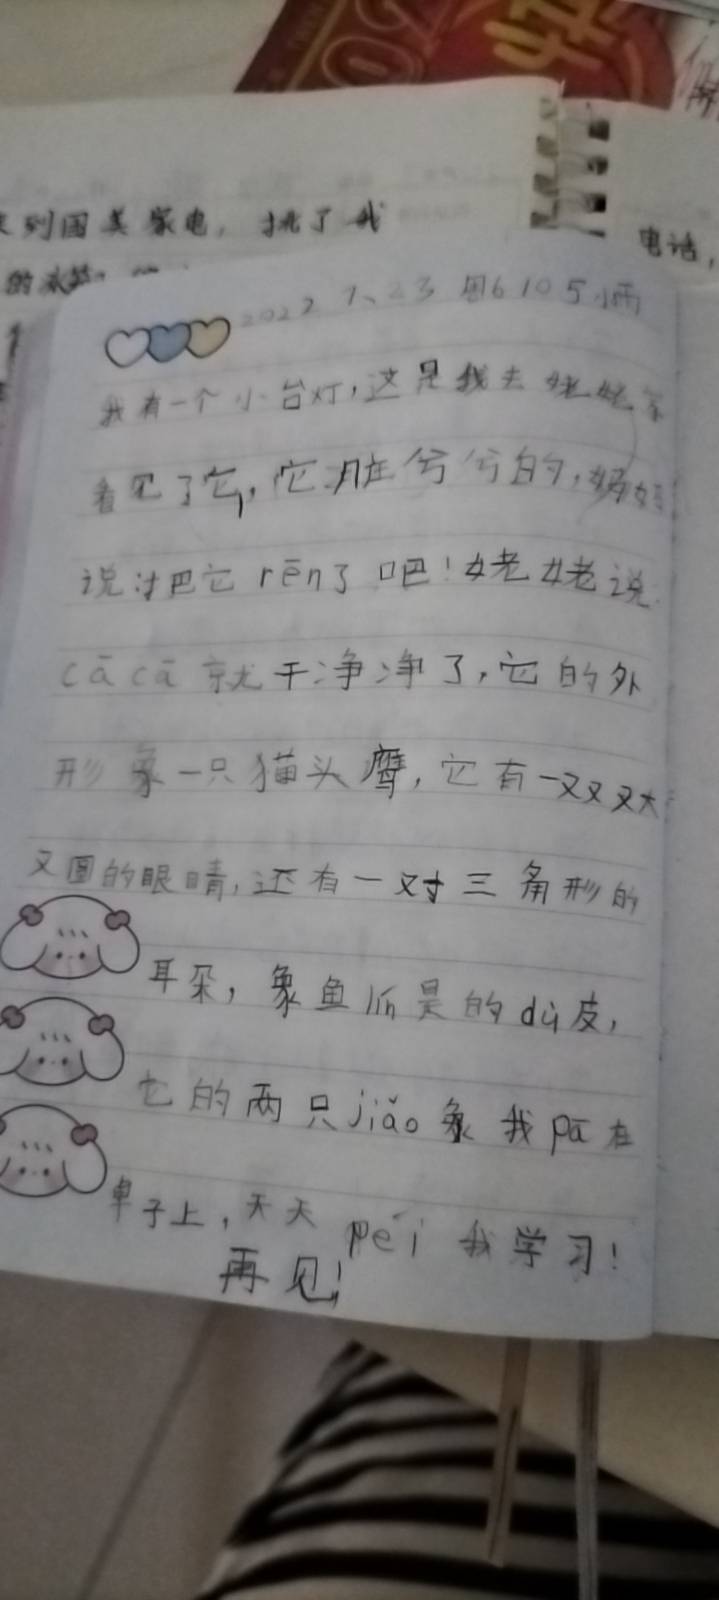 来到国美家电，挑了我
的冰箱
电话，
2022 7、23 周6 105 小雨
我有一个小台灯，这是我去姥姥家
看见了它，它脏兮兮的，妈妈
说过把它rēn了吧！姥姥说
cācā就干净净了，它的外
形象一只猫头鹰，它有一双又大
又圆的眼睛，还有一对三角形的
耳朵，象鱼爪是的dù皮，
它的两只jiǎo象我pā在
桌子上，天天péi我学习！
再见！